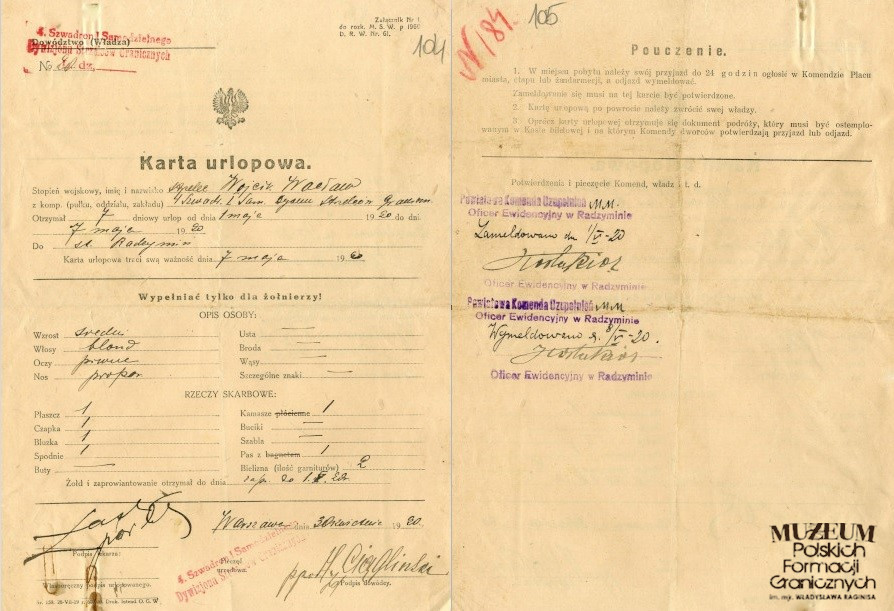 Załącznik Nr 1
do rozk. M. S. W. p 1901
D. R. W. Nr. 61.
104
4. Szwadron I Samodzielnego
Dowództwo (Władza)
Dywizjonu Strzelców Granicznych
№ dz.
Karta urlopowa.
Stopień wojskowy, imię i nazwisko strzelec Wojcik Wacław
z komp. (pułku, oddziału, zakładu) 4 Szwadr. I Sam. Dyonu Strzelców Graniczn.
Otrzymał 7 dniowy urlop od dnia 1 maja 1920 do dni.
7 maja 1920
Do st. Radzymin
Karta urlopowa traci swą ważność dnia 7 maja 1920
Wypełniać tylko dla żołnierzy!
OPIS OSOBY:
Wzrost średni
Włosy blond
Oczy piwne
Nos propor.
Usta —
Broda —
Wąsy —
Szczególne znaki —
RZECZY SKARBOWE:
Płaszcz 1
Czapka 1
Bluzka 1
Spodnie 1
Buty —
Kamasze płócienne 1
Buciki —
Szabla —
Pas z bagnetem 1
Bielizna (ilość garniturów) 2
Żołd i zaprowiantowanie otrzymał do dnia
zap. do 1.V. 20r.
Warszawa dnia 30 kwietnia 1920.
4. Szwadron I Samodzielnego
Dywizjonu Strzelców Granicznych
Podpis lekarza:
Pieczęć urzędowa.
ppor. Ciągliński
Podpis dowódcy.
Własnoręczny podpis urlopowanego.
105
N/184
Pouczenie.
1. W miejscu pobytu należy swój przyjazd do 24 godzin ogłosić w Komendzie Placu
miasta, etapu lub żandarmerji, a odjazd wymeldować.
Zameldowanie się musi na tej karcie być potwierdzone.
2. Kartę urlopową po powrocie należy zwrócić swej władzy.
3. Oprócz karty urlopowej otrzymuje się dokument podróży, który musi być ostemplo-
wanym w Kasie biletowej i na którym Komendy dworców potwierdzają przyjazd lub odjazd.
Potwierdzenia i pieczęcie Komend, władz i t. d.
Powiatowa Komenda Uzupełnień M.M.
Oficer Ewidencyjny w Radzyminie
Zameldowano dn. 1/V-20
Oficer Ewidencyjny w Radzyminie
Powiatowa Komenda Uzupełnień M.M
Oficer Ewidencyjny w Radzyminie
Wymeldowano d. 8/V-20.
Oficer Ewidencyjny w Radzyminie
MUZEUM
Polskich
Formacji
Granicznych
im. mjr. WŁADYSŁAWA RAGINISA